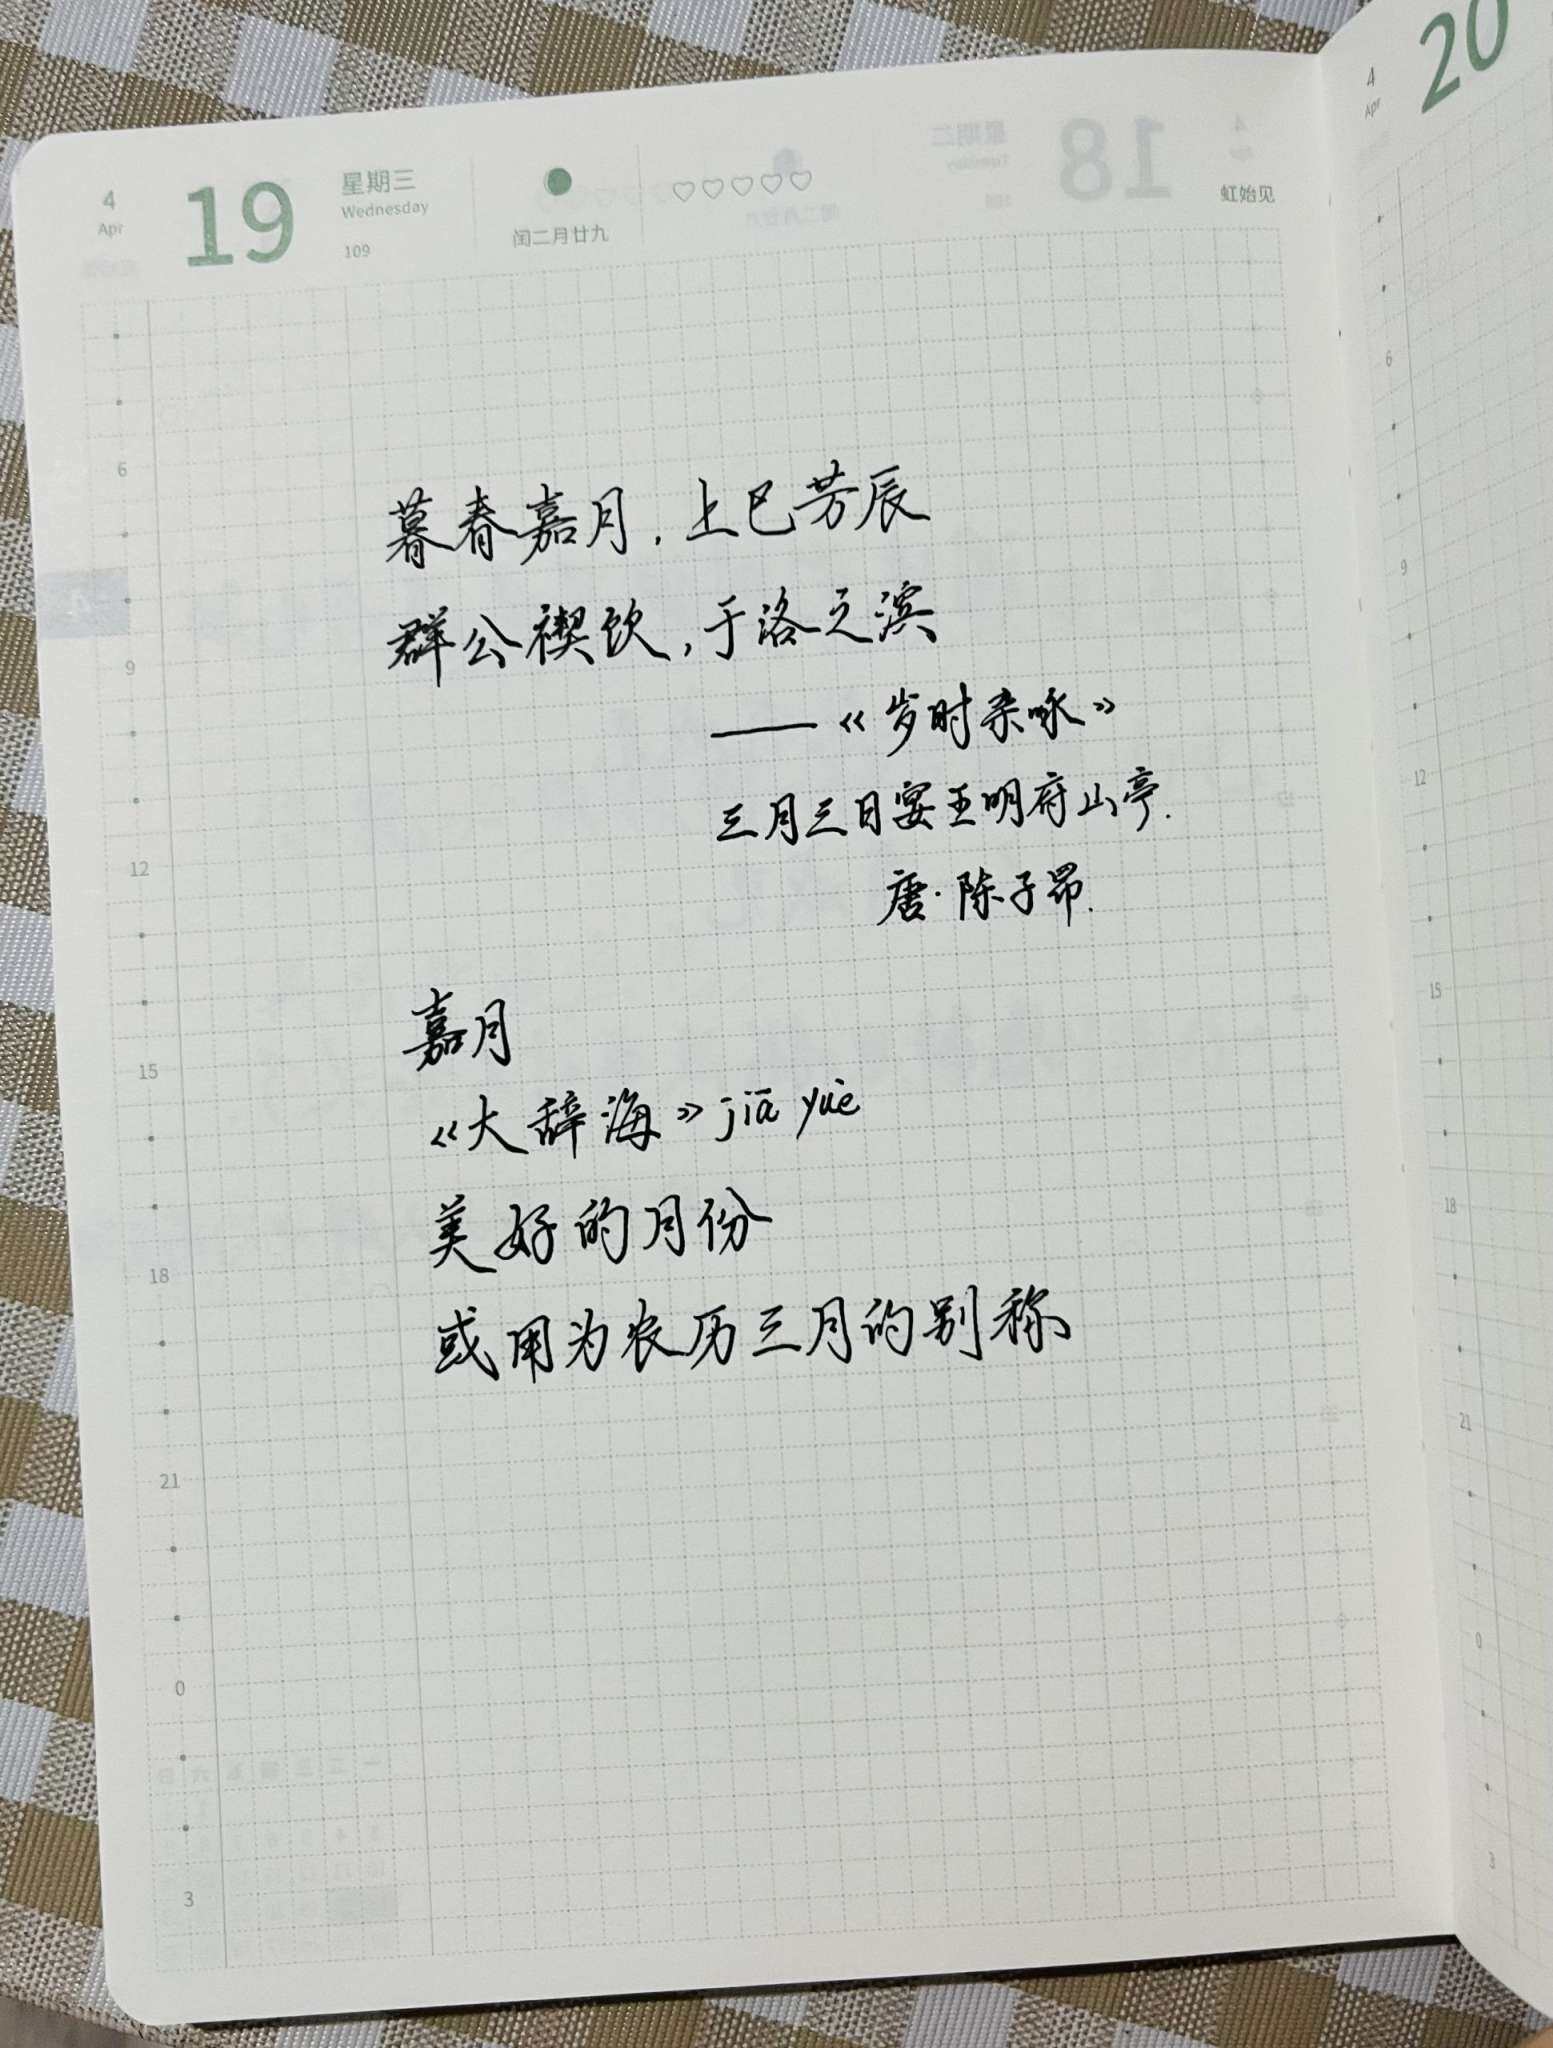 4
Apr
19
星期三
Wednesday
109
闰二月廿九
虹始见
暮春嘉月，上巳芳辰
群公禊饮，于洛之滨
——《岁时杂咏》
三月三日宴王明府山亭.
唐·陈子昂.
嘉月
《大辞海》jiā yuè
美好的月份
或用为农历三月的别称
6
9
12
15
18
21
0
3
4
Apr
20
6
9
12
15
18
21
0
3